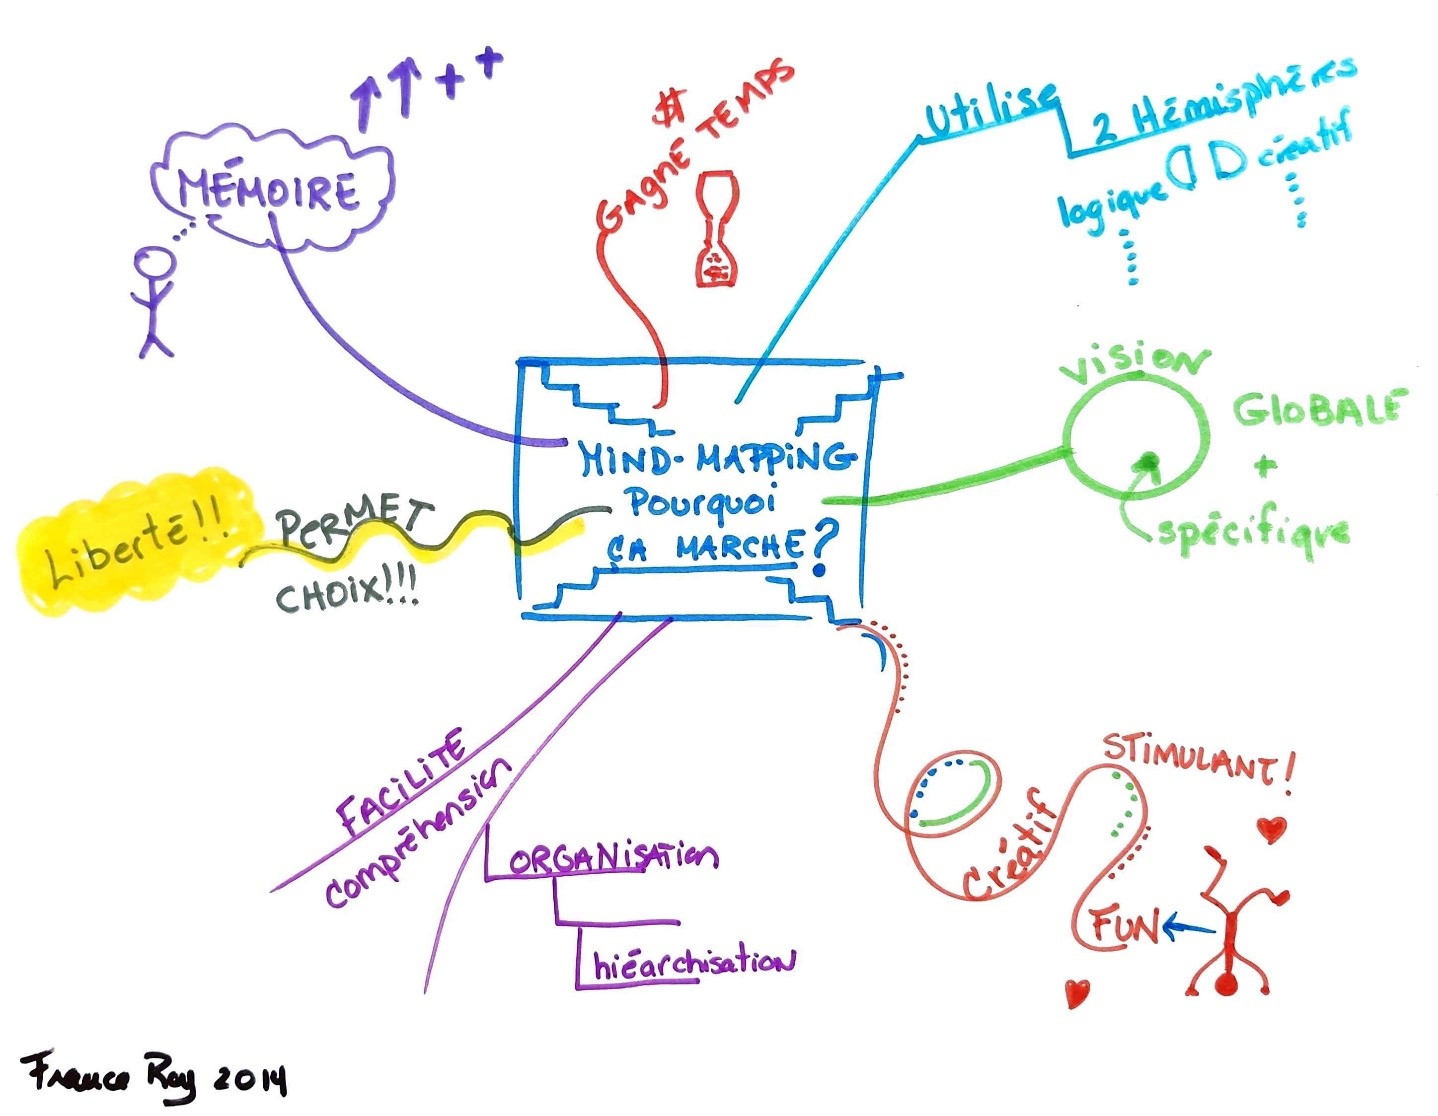 MÉMOIRE
++
$
GAGNE TEMPS
Utilise
2 Hémisphères
logique
créatif
MIND-MAPPING
Pourquoi
ÇA MARCHE?
Vision
GLOBALE
+
spécifique
Liberté!!
PERMET
CHOIX!!!
FACILITE
compréhension
ORGANISATION
hiéarchisation
Créatif
STIMULANT!
FUN
France Roy 2014